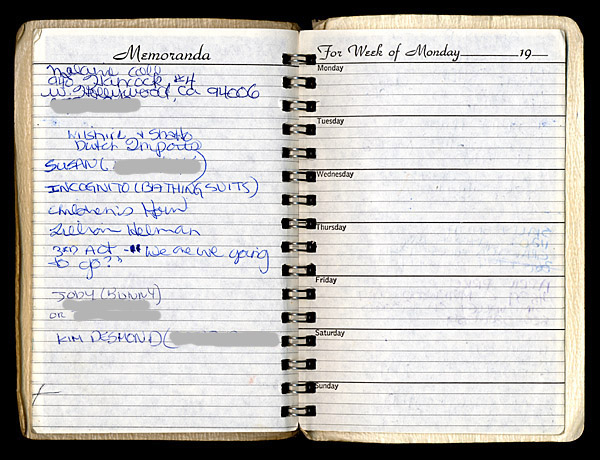 Memoranda
#4
W. Hollywood, Ca 94006
Wilshire & Shatto
Dutch Imports
SUSAN (
)
INCOGNITO (BATHING SUITS)
Children's Hour
Lillian Helman
3RD ACT - "We are we going
to go?"
JODY (BUNNY)
OR
KIM DESMOND (
For Week of Monday 19
Monday
Tuesday
Wednesday
Thursday
Friday
Saturday
Sunday